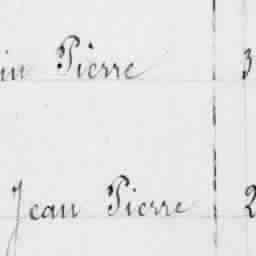 in Pierre 3
Jean Pierre 2